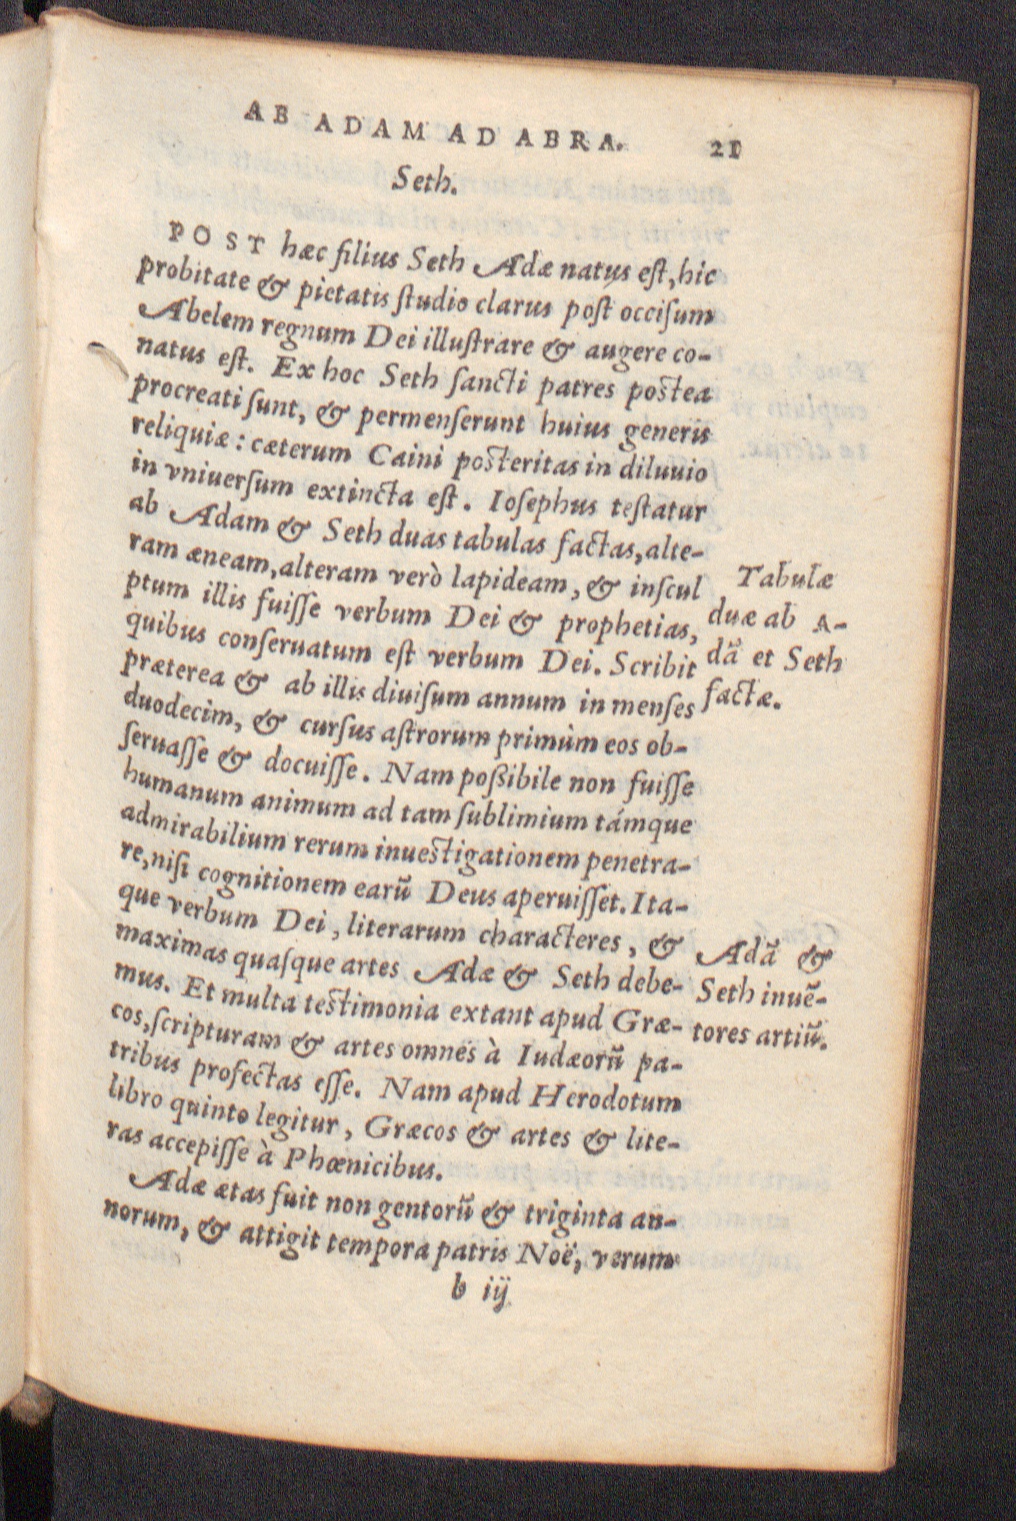 AB ADAM AD ABRA. 21
Seth.
POST hæc filius Seth Adæ natus eſt, hic
probitate & pietatis ſtudio clarus poſt occiſum
Abelem regnum Dei illuſtrare & augere co-
natus eſt. Ex hoc Seth ſancti patres poſtea
procreati ſunt, & permenſerunt huius generis
reliquiæ: cæterum Caini poſteritas in diluuio
in vniuerſum extincta eſt. Ioſephus teſtatur
ab Adam & Seth duas tabulas factas, alte-
ram æneam, alteram verò lapideam, & inſcul
ptum illis fuiſſe verbum Dei & prophetias,
quibus conſeruatum eſt verbum Dei. Scribit
præterea & ab illis diuiſum annum in menſes
duodecim, & curſus aſtrorum primùm eos ob-
ſeruaſſe & docuiſſe. Nam poßibile non fuiſſe
humanum animum ad tam ſublimium támque
admirabilium rerum inueſtigationem penetra-
re, niſi cognitionem earū Deus aperuiſſet. Ita-
que verbum Dei, literarum characteres, &
maximas quaſque artes Adæ & Seth debe-
mus. Et multa teſtimonia extant apud Græ-
cos, ſcripturam & artes omnes à Iudæorū pa-
tribus profectas eſſe. Nam apud Herodotum
libro quinto legitur, Græcos & artes & lite-
ras accepiſſe à Phœnicibus.
Adæ ætas fuit non gentorū & triginta an-
norum, & attigit tempora patris Noë, verum
b iij
Tabulæ
duæ ab A-
dā et Seth
factæ.
Adā &
Seth inuē-
tores artiū.